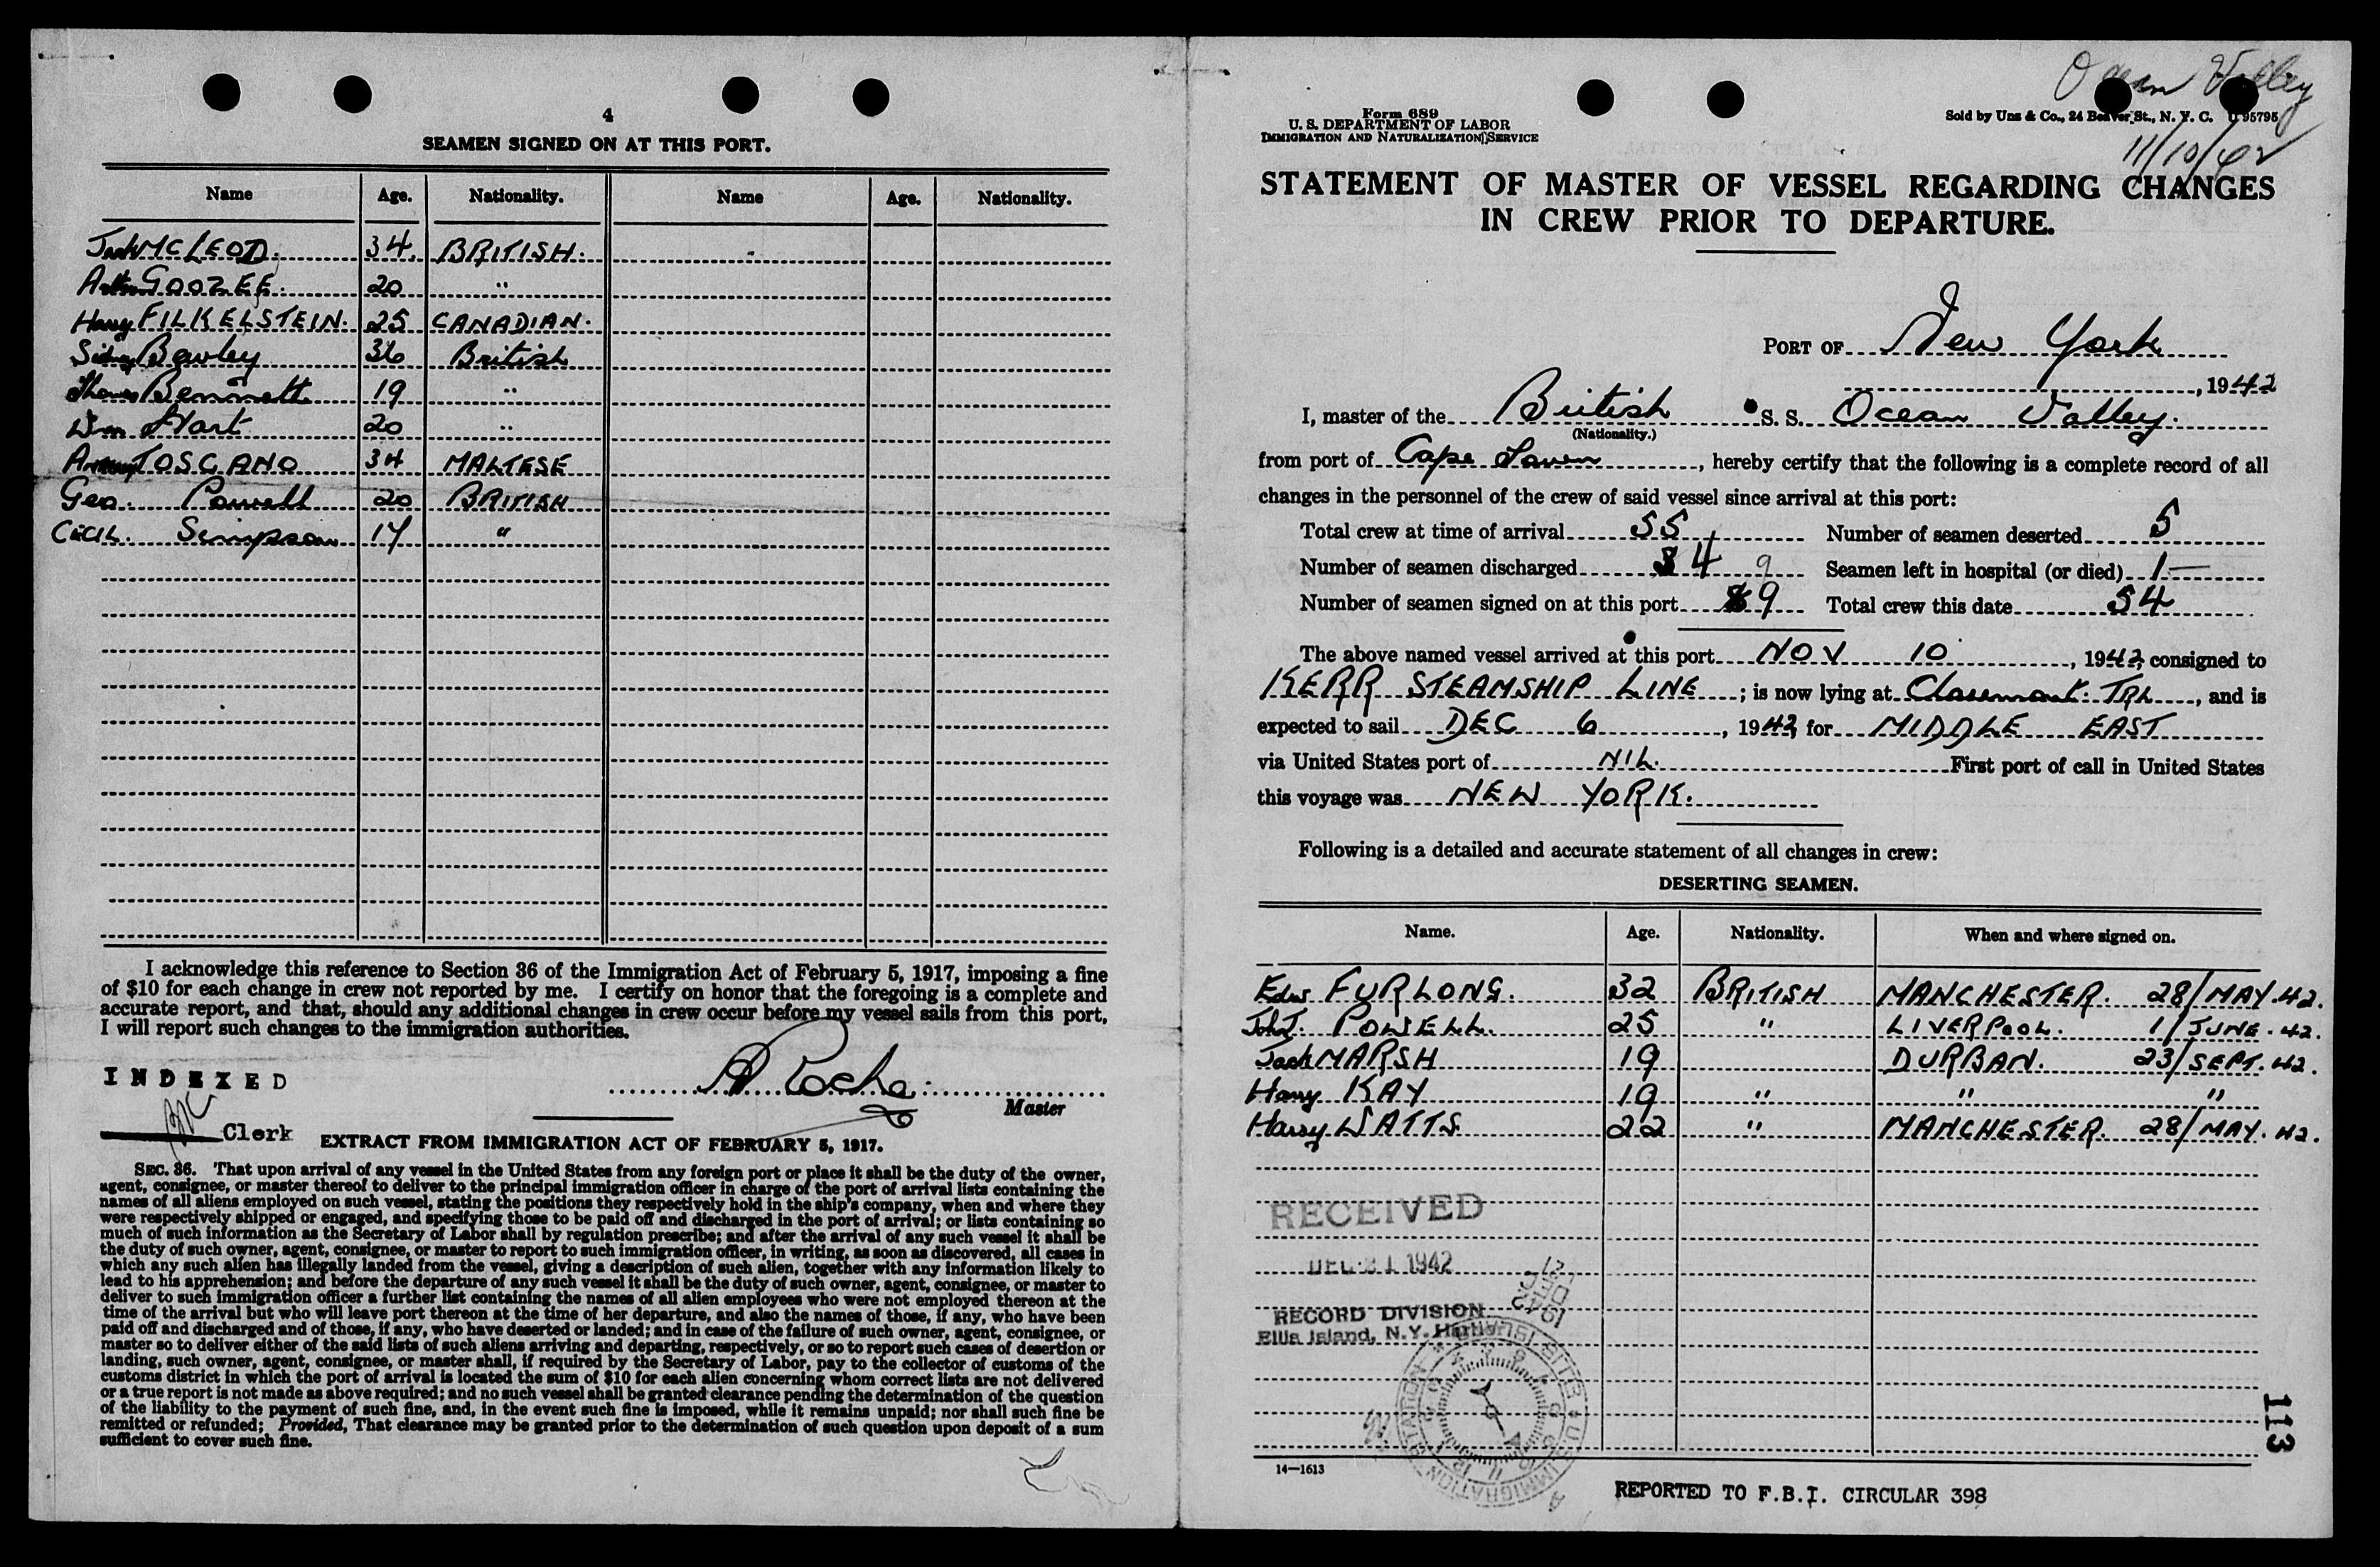 4
SEAMEN SIGNED ON AT THIS PORT.
Name Age. Nationality. Name Age. Nationality.
Jack McLEOD. 34. BRITISH.
GOOZEE. 20 "
Harry FILKELSTEIN. 25 CANADIAN.
Sidney 36 British
Thomas Bennett 19 "
Wm Hart 20 "
TOSCANO 34 MALTESE
Geo. Powell 20 BRITISH
CECIL. Simpson 17 "
I acknowledge this reference to Section 36 of the Immigration Act of February 5, 1917, imposing a fine
of $10 for each change in crew not reported by me. I certify on honor that the foregoing is a complete and
accurate report, and that, should any additional changes in crew occur before my vessel sails from this port,
I will report such changes to the immigration authorities.
INDEXED
Master
Clerk
EXTRACT FROM IMMIGRATION ACT OF FEBRUARY 5, 1917.
SEC. 36. That upon arrival of any vessel in the United States from any foreign port or place it shall be the duty of the owner,
agent, consignee, or master thereof to deliver to the principal immigration officer in charge of the port of arrival lists containing the
names of all aliens employed on such vessel, stating the positions they respectively hold in the ship's company, when and where they
were respectively shipped or engaged, and specifying those to be paid off and discharged in the port of arrival; or lists containing so
much of such information as the Secretary of Labor shall by regulation prescribe; and after the arrival of any such vessel it shall be
the duty of such owner, agent, consignee, or master to report to such immigration officer, in writing, as soon as discovered, all cases in
which any such alien has illegally landed from the vessel, giving a description of such alien, together with any information likely to
lead to his apprehension; and before the departure of any such vessel it shall be the duty of such owner, agent, consignee, or master to
deliver to such immigration officer a further list containing the names of all alien employees who were not employed thereon at the
time of the arrival but who will leave port thereon at the time of her departure, and also the names of those, if any, who have been
paid off and discharged and of those, if any, who have deserted or landed; and in case of the failure of such owner, agent, consignee, or
master so to deliver either of the said lists of such aliens arriving and departing, respectively, or so to report such cases of desertion or
landing, such owner, agent, consignee, or master shall, if required by the Secretary of Labor, pay to the collector of customs of the
customs district in which the port of arrival is located the sum of $10 for each alien concerning whom correct lists are not delivered
or a true report is not made as above required; and no such vessel shall be granted clearance pending the determination of the question
of the liability to the payment of such fine, and, in the event such fine is imposed, while it remains unpaid; nor shall such fine be
remitted or refunded; Provided, That clearance may be granted prior to the determination of such question upon deposit of a sum
sufficient to cover such fine.
Ocean Valley
Form 689
U. S. DEPARTMENT OF LABOR
IMMIGRATION AND NATURALIZATION SERVICE
Sold by Unz & Co., 24 Beaver St., N. Y. C. U 95795
11/10/42
STATEMENT OF MASTER OF VESSEL REGARDING CHANGES
IN CREW PRIOR TO DEPARTURE.
PORT OF New York
, 1942
I, master of the British S. S. Ocean Valley.
(Nationality.)
from port of Cape Town, hereby certify that the following is a complete record of all
changes in the personnel of the crew of said vessel since arrival at this port:
Total crew at time of arrival 55 Number of seamen deserted 5
Number of seamen discharged 4 9 Seamen left in hospital (or died) 1
Number of seamen signed on at this port 9 Total crew this date 54
The above named vessel arrived at this port NOV 10, 1942 consigned to
KERR STEAMSHIP LINE; is now lying at Claremont TRL, and is
expected to sail DEC 6, 1942 for MIDDLE EAST
via United States port of NIL. First port of call in United States
this voyage was NEW YORK.
Following is a detailed and accurate statement of all changes in crew:
DESERTING SEAMEN.
Name. Age. Nationality. When and where signed on.
Edw FURLONG. 32 BRITISH MANCHESTER. 28/MAY.42.
John J. POWELL. 25 " LIVERPOOL. 1/JUNE.42.
Jack MARSH 19 DURBAN. 23/SEPT.42.
Harry KAY 19 " " "
Harry WATTS. 22 " MANCHESTER. 28/MAY.42.
RECEIVED
DEC 31 1942
RECORD DIVISION
Ellis Island, N.Y. Harbor
113
14—1613
REPORTED TO F.B.I. CIRCULAR 398